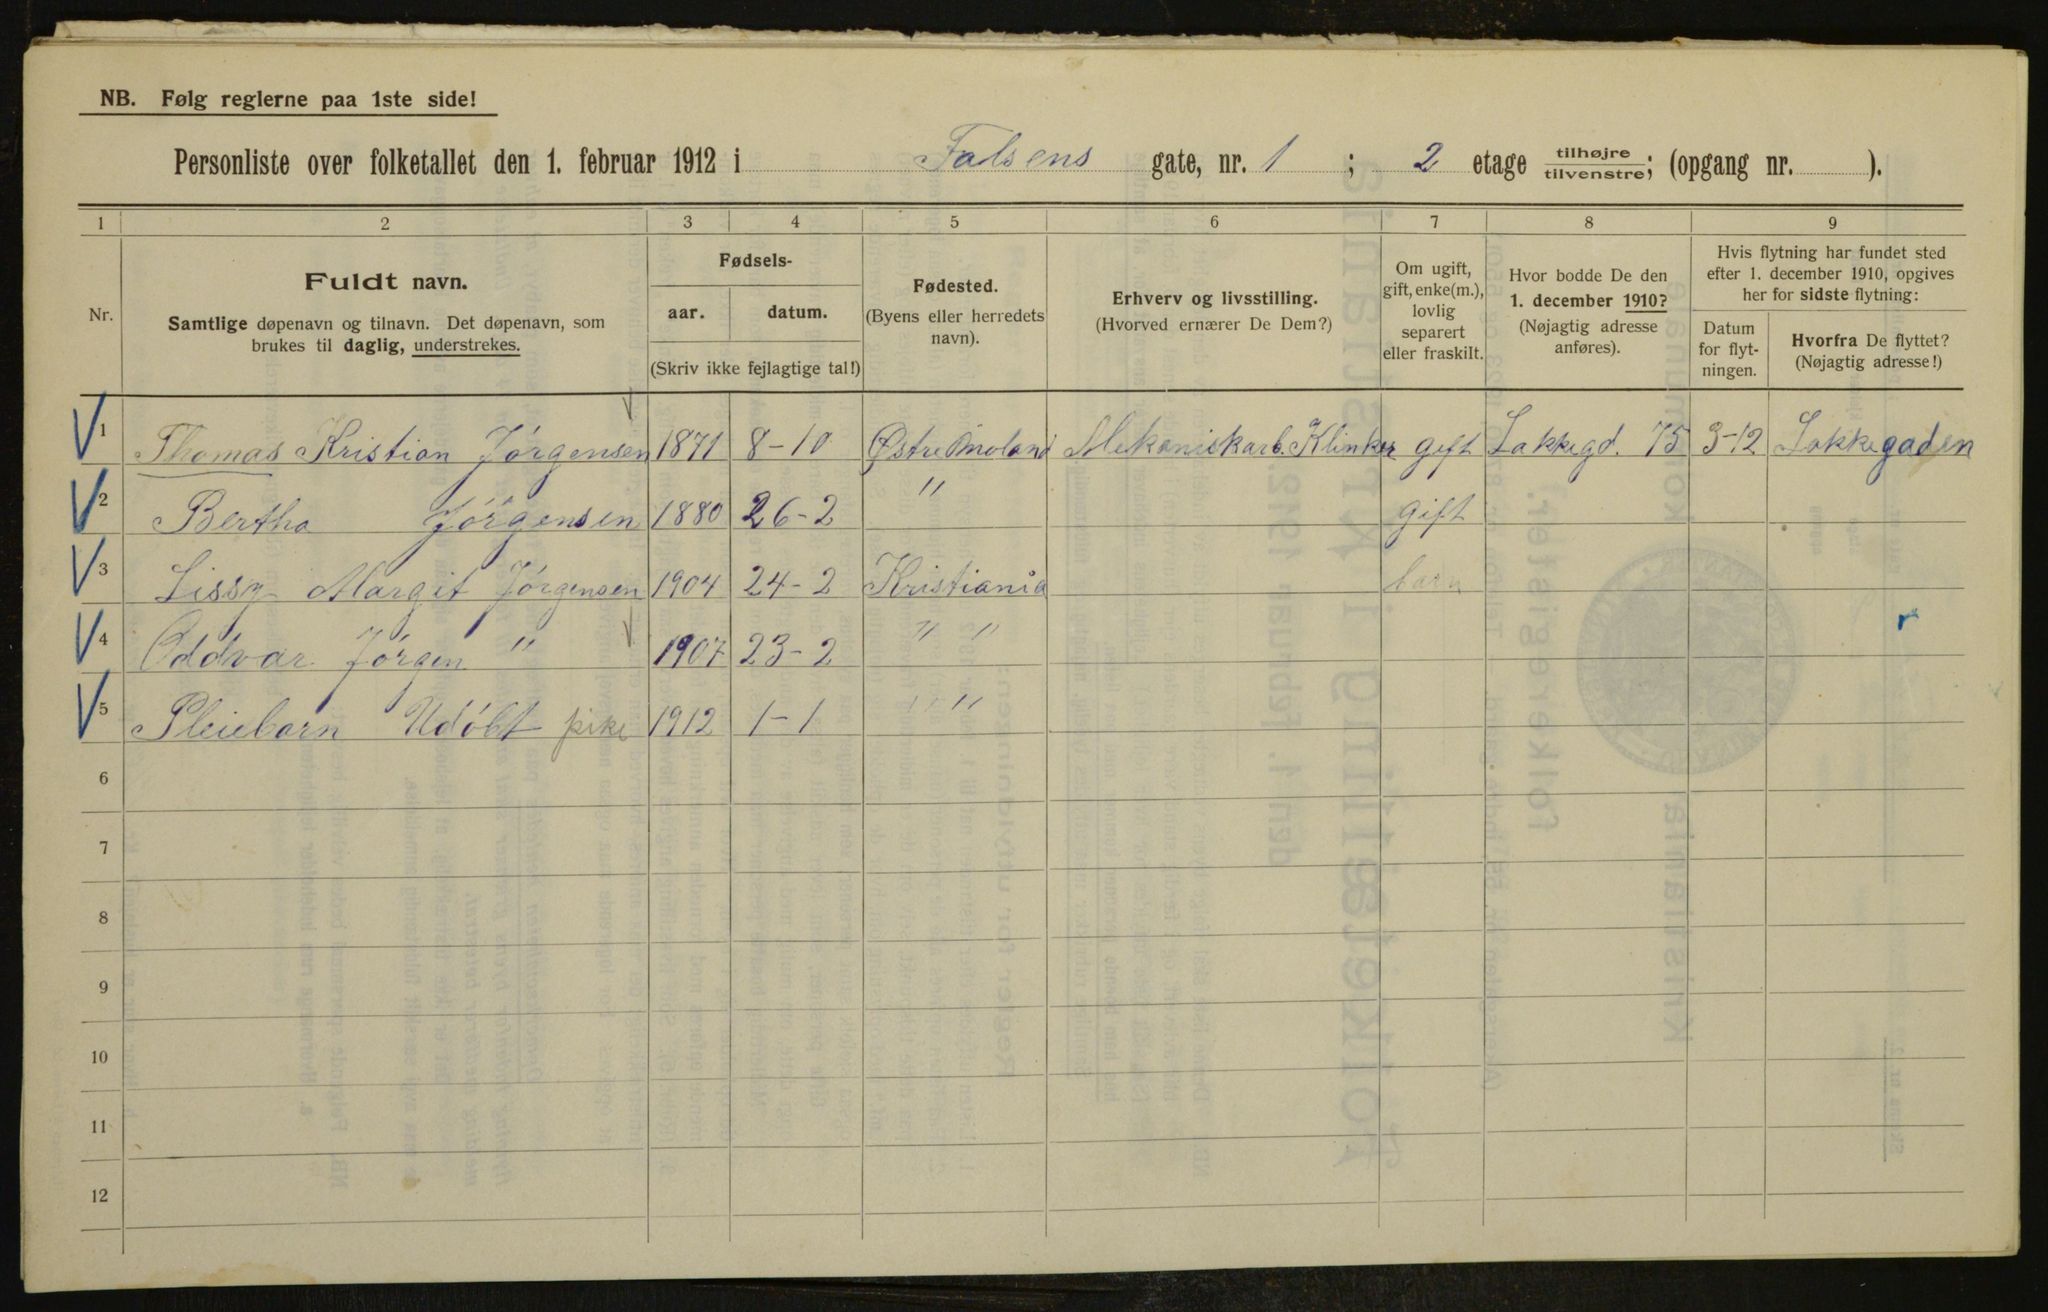 NB. Følg reglerne paa 1ste side!
Personliste over folketallet den 1. februar 1912 i Falsens gate, nr. 1 ; 2 etage tilhøjre tilvenstre; (opgang nr. ).
1 2 3 4 5 6 7 8 9
Nr.
Fuldt navn.
Samtlige døpenavn og tilnavn. Det døpenavn, som
brukes til daglig, understrekes.
Fødsels-
aar. datum.
(Skriv ikke fejlagtige tal!)
Fødested.
(Byens eller herredets
navn).
Erhverv og livsstilling.
(Hvorved ernærer De Dem?)
Om ugift,
gift, enke(m.),
lovlig
separert
eller fraskilt.
Hvor bodde De den
1. december 1910?
(Nøjagtig adresse
anføres).
Hvis flytning har fundet sted
efter 1. december 1910, opgives
her for sidste flytning:
Datum
for flyt-
ningen.
Hvorfra De flyttet?
(Nøjagtig adresse!)
1 Thomas Kristian Jórgensen 1871 8-10 Østre Moland Mekaniskarb. Klinker gift Lakkegd. 75 3-12 Lakkegaden
2 Bertha Jórgensen 1880 26-2 " gift
3 Lissy Margit Jórgensen 1904 24-2 Kristiania barn
4 Oddvar Jórgen " 1907 23-2 " "
5 Pleiebarn Udóbt pike 1912 1-1 " "
6
7
8
9
10
11
12